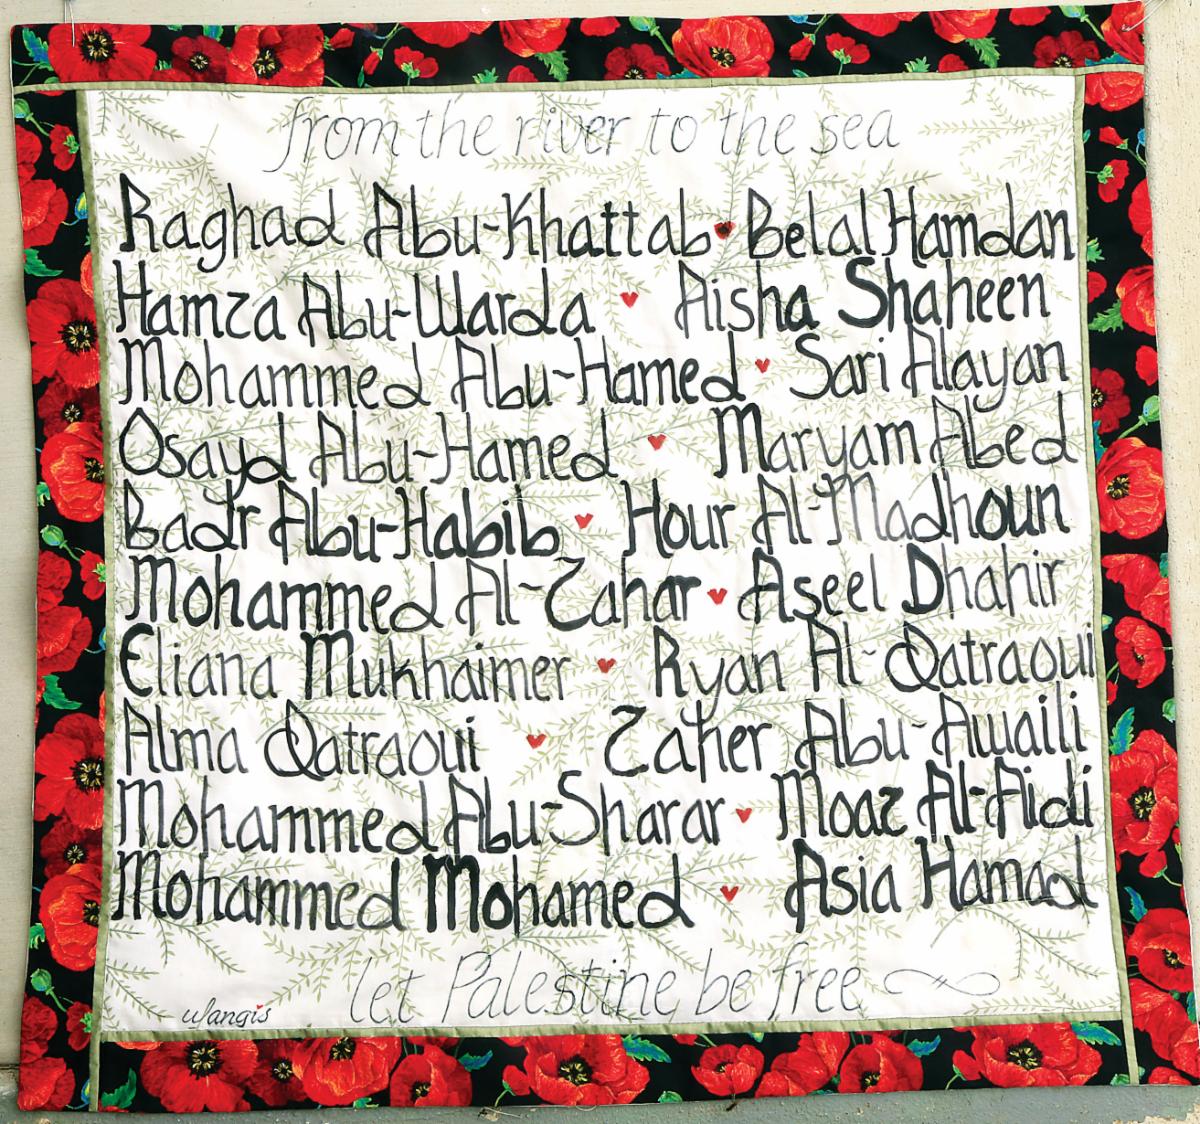 from the river to the sea
Raghad Abu-Khattab Belal Hamdan
Hamza Abu-Warda Aisha Shaheen
Mohammed Abu-Hamed Sari Alayan
Osayd Abu-Hamed Maryam Abed
Badr Abu-Habib Hour Al-Madhoun
Mohammed Al-Zahar Aseel Dhahir
Eliana Mukhaimer Ryan Al-Qatraoui
Alma Qatraoui Zaher Abu-Awaili
Mohammed Abu-Sharar Moaz Al-Aidi
Mohammed Mohamed Asia Hamad
let Palestine be free